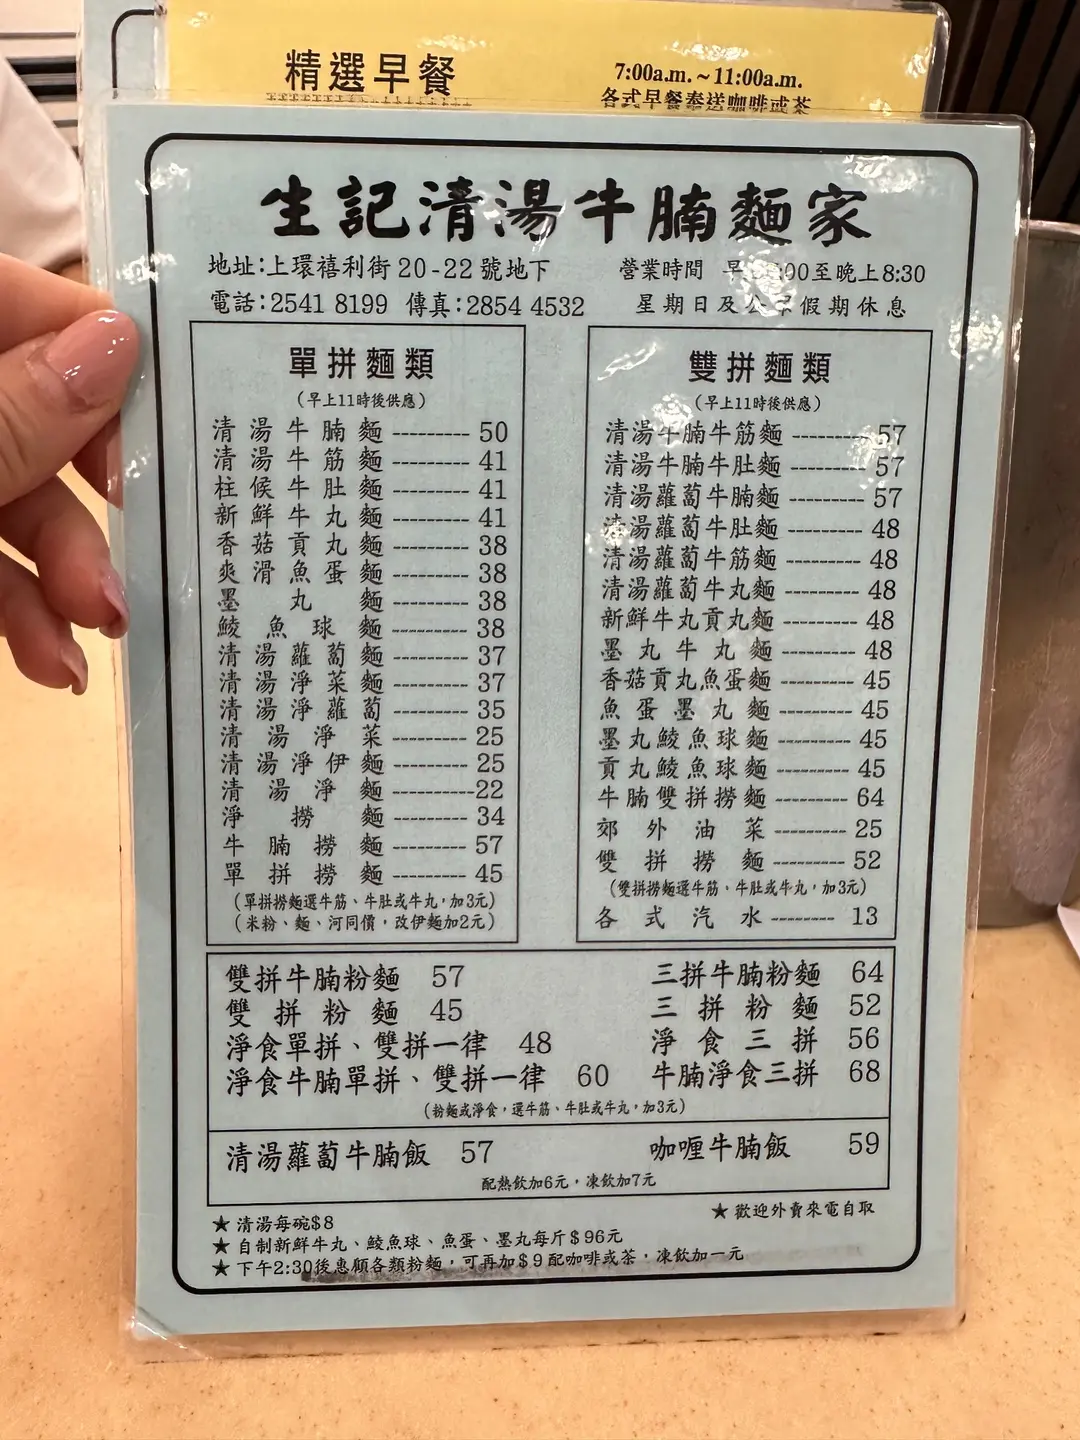 精選早餐
7:00a.m.~11:00a.m.
各式早餐奉送咖啡或茶
生記清湯牛腩麵家
地址:上環禧利街 20-22 號地下
營業時間 早 00至晚上8:30
電話:2541 8199 傳真:2854 4532
星期日及公眾假期休息
單拼麵類
(早上11時後供應)
清湯牛腩麵 --------- 50
清湯牛筋麵 --------- 41
柱候牛肚麵 --------- 41
新鮮牛丸麵 --------- 41
香菇貢丸麵 --------- 38
爽滑魚蛋麵 --------- 38
墨丸麵 --------- 38
鯪魚球麵 --------- 38
清湯蘿蔔麵 --------- 37
清湯淨菜麵 --------- 37
清湯淨蘿蔔 --------- 35
清湯淨菜 --------- 25
清湯淨伊麵 --------- 25
清湯淨麵 --------- 22
淨撈麵 --------- 34
牛腩撈麵 --------- 57
單拼撈麵 --------- 45
(單拼撈麵選牛筋、牛肚或牛丸,加3元)
(米粉、麵、河同價,改伊麵加2元)
雙拼麵類
(早上11時後供應)
清湯牛腩牛筋麵 --------- 57
清湯牛腩牛肚麵 --------- 57
清湯蘿蔔牛腩麵 --------- 57
清湯蘿蔔牛肚麵 --------- 48
清湯蘿蔔牛筋麵 --------- 48
清湯蘿蔔牛丸麵 --------- 48
新鮮牛丸貢丸麵 --------- 48
墨丸牛丸麵 --------- 48
香菇貢丸魚蛋麵 --------- 45
魚蛋墨丸麵 --------- 45
墨丸鯪魚球麵 --------- 45
貢丸鯪魚球麵 --------- 45
牛腩雙拼撈麵 --------- 64
郊外油菜 --------- 25
雙拼撈麵 --------- 52
(雙拼撈麵選牛筋、牛肚或牛丸,加3元)
各式汽水 -------- 13
雙拼牛腩粉麵 57
三拼牛腩粉麵 64
雙拼粉麵 45
三拼粉麵 52
淨食單拼、雙拼一律 48
淨食三拼 56
淨食牛腩單拼、雙拼一律 60
牛腩淨食三拼 68
(粉麵或淨食,選牛筋、牛肚或牛丸,加3元)
清湯蘿蔔牛腩飯 57
咖喱牛腩飯 59
配熱飲加6元,凍飲加7元
★ 清湯每碗$8
★ 歡迎外賣來電自取
★ 自制新鮮牛丸、鯪魚球、魚蛋、墨丸每斤$96元
★ 下午2:30後惠顧各類粉麵,可再加$9配咖啡或茶,凍飲加一元